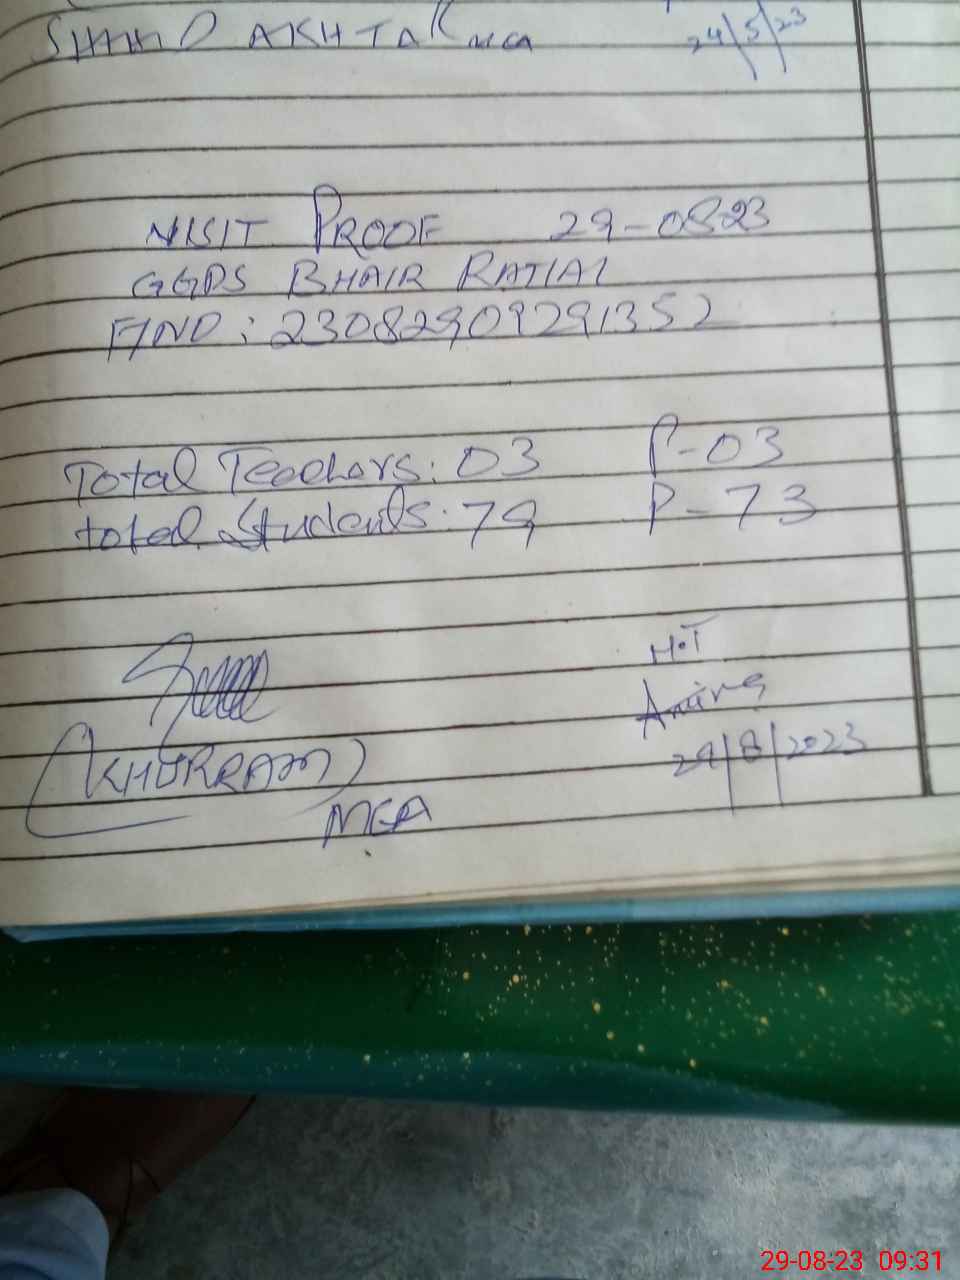 AKHTAR MCA 24/5/23
VISIT PROOF 29-08-23
GGPS BHAIR RATIAL
F/NO: 23082909291352
Total Teachers: 03 P-03
total Students: 79 P-73
H.T
(KHURRAM)
29/8/2023
MEA
29-08-23 09:31